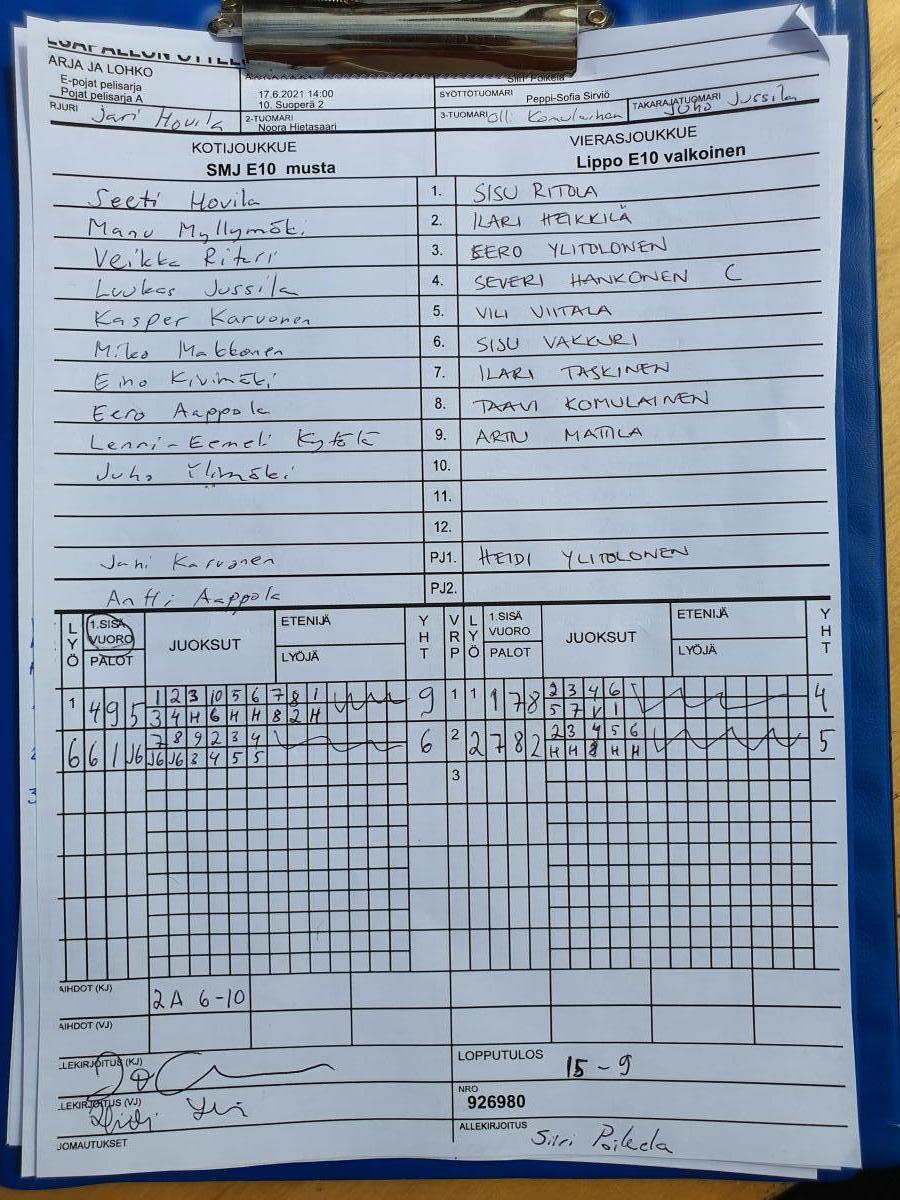 ARJA JA LOHKO
E-pojat pelisarja
Pojat pelisarja A
17.6.2021 14:00
10. Suoperä 2
Siiri Poikela
SYÖTTÖTUOMARI Peppi-Sofia Sirviö
RJURI Jari Hovila
2-TUOMARI
Noora Hietasaari
3-TUOMARI Olli Komulainen
TAKARAJATUOMARI Juho Jussila
KOTIJOUKKUE
SMJ E10 musta
VIERASJOUKKUE
Lippo E10 valkoinen
Seeti Hovila 1. SISU RITOLA
Manu Myllymäki 2. ILARI HEIKKILÄ
Veikka Rituri 3. EERO YLITOLONEN
Luukas Jussila 4. SEVERI HANKONEN C
Kasper Karvonen 5. VILI VIITALA
Miko Makkonen 6. SISU VAKKURI
Eino Kivimäki 7. ILARI TASKINEN
Eero Aappola 8. TAAVI KOMULAINEN
Lenni-Eemeli Kytölä 9. ARTTU MATTILA
Juho Ylimäki 10.
11.
12.
Jani Karvonen PJ1. HEIDI YLITOLONEN
Antti Aappola PJ2.
LYÖ 1.SISÄ VUORO PALOT JUOKSUT ETENIJÄ LYÖJÄ YHT VRP LYÖ 1.SISÄ VUORO PALOT JUOKSUT ETENIJÄ LYÖJÄ YHT
1 4 9 5 1 2 3 10 5 6 7 8 1 9 1 1 1 7 8 2 3 4 6 4
3 4 H 6 H H 8 2 H 5 7 V 1
6 6 1 J6 7 8 9 2 3 4 6 2 2 7 8 2 2 3 4 5 6 5
J6 J6 3 4 5 5 H H 8 H H
3
AIHDOT (KJ) 2A 6-10
AIHDOT (VJ)
LLEKIRJOITUS (KJ)
LOPPUTULOS 15-9
LLEKIRJOITUS (VJ)
NRO
926980
JOMAUTUKSET
ALLEKIRJOITUS Siiri Poikela